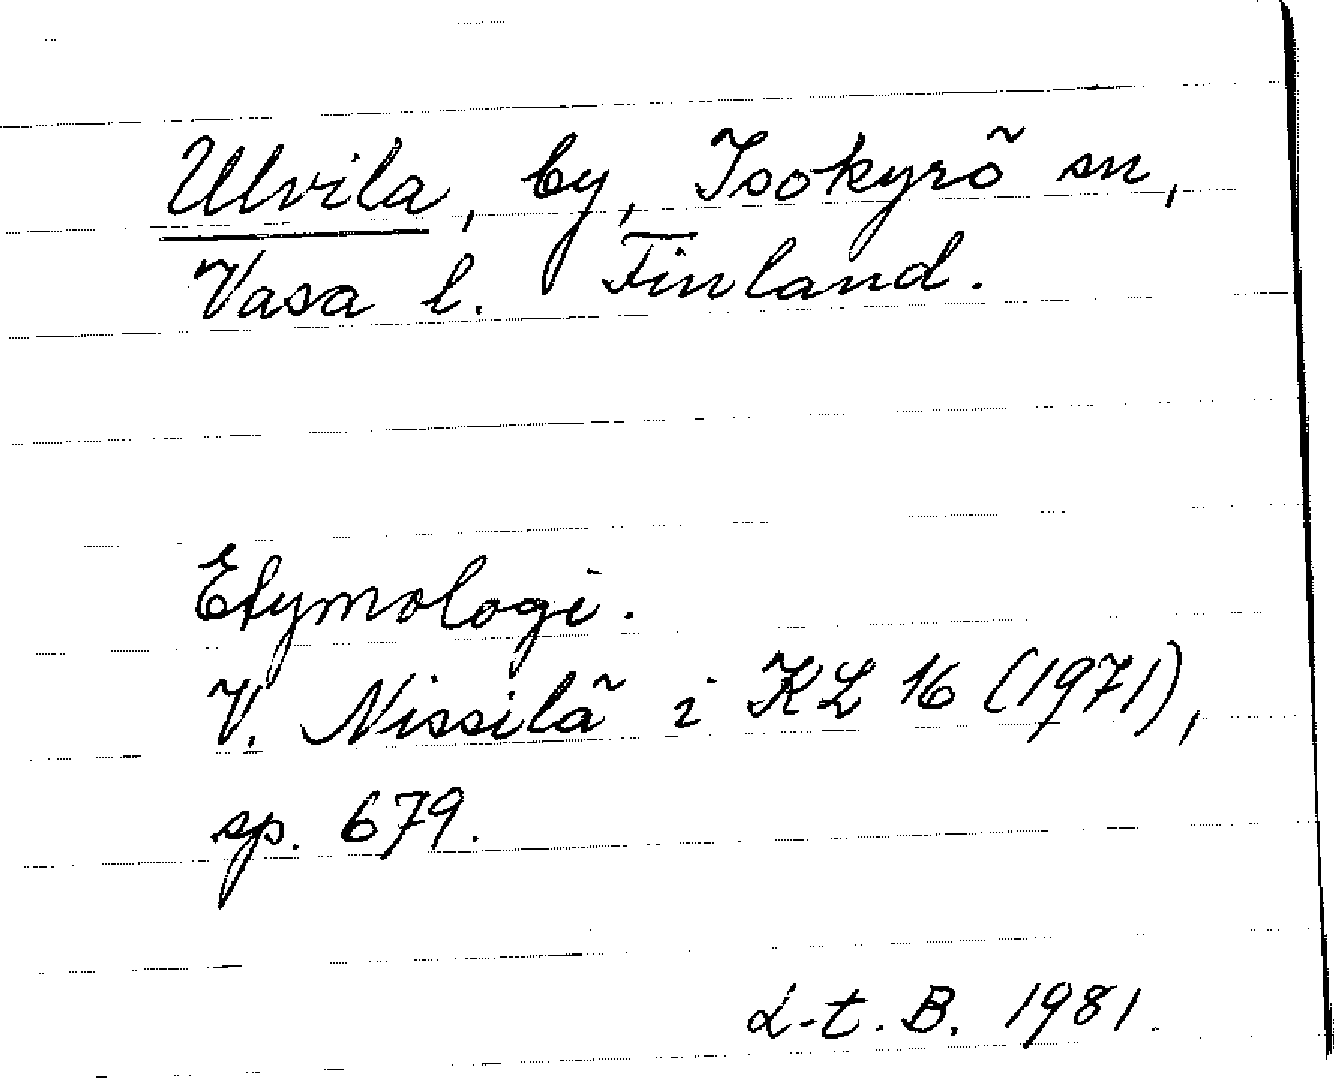 Ulvila, by, Isokyrö sn,
Vasa l. Finland.
Etymologi.
V. Nissilä i KL 16 (1971),
sp. 679.
L-t. B. 1981.